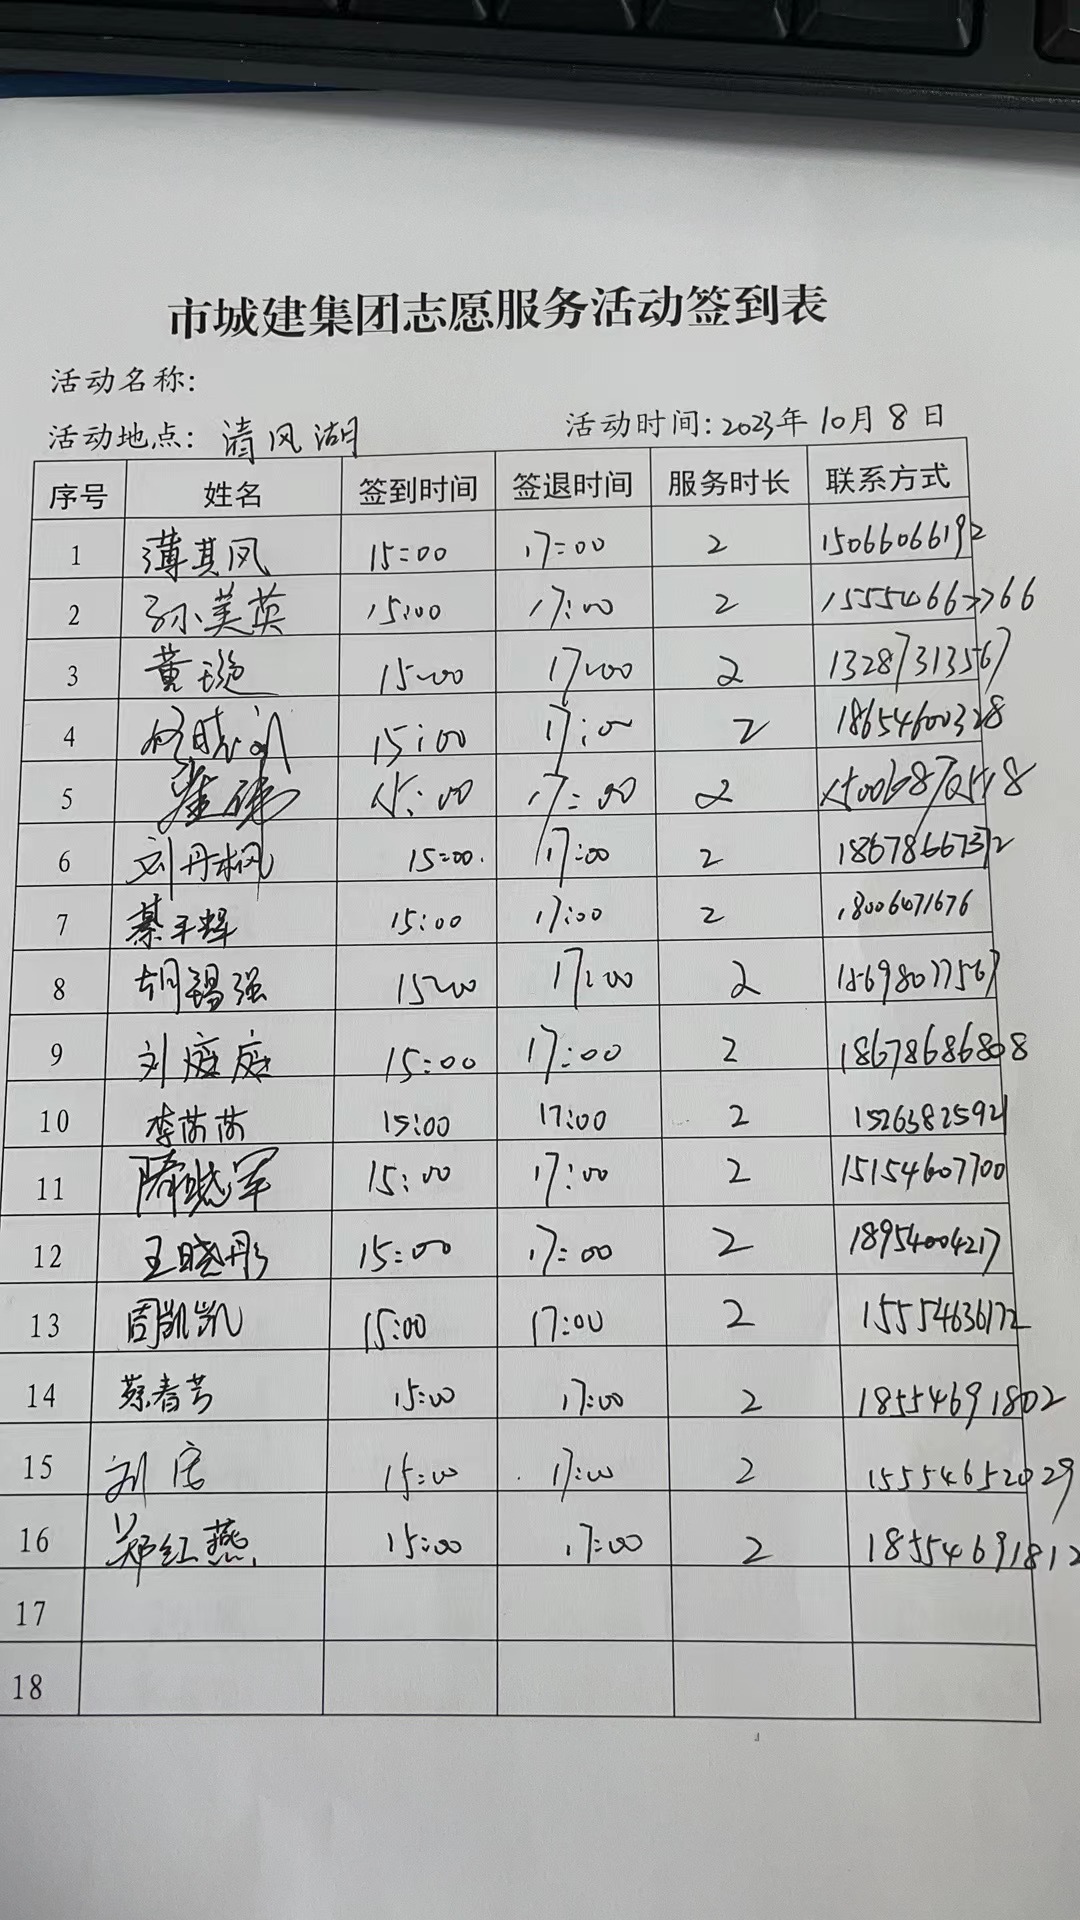 市城建集团志愿服务活动签到表
活动名称:
活动地点: 清风湖 活动时间: 2023年10月8日
序号 姓名 签到时间 签退时间 服务时长 联系方式
1 薄其凤 15:00 17:00 2 15066066192
2 孙美英 15:00 17:00 2 15554662766
3 黄璇 15:00 17:00 2 13287313567
4 15:00 17:00 2 18654600328
5 崔伟 15:00 17:00 2
6 刘丹枫 15:00. 17:00 2 18678667372
7 綦玉辉 15:00 17:00 2 18006471676
8 胡锡强 15:00 17:00 2 15698077567
9 刘庭庭 15:00 17:00 2 18678686808
10 李芮芮 15:00 17:00 2 15263825921
11 隋晓军 15:00 17:00 2 15154607700
12 王晓彤 15:00 17:00 2 18954004217
13 周凯凯 15:00 17:00 2 15554636172
14 蔡春芳 15:00 17:00 2 18554691802
15 刘 15:00 17:00 2 15554652029
16 郑红燕 15:00 17:00 2 18554691812
17
18